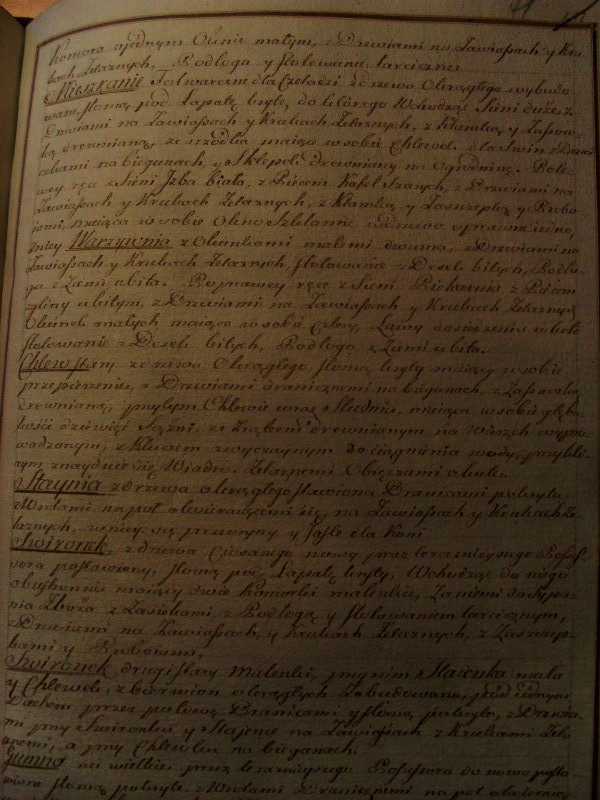 Komora o jednym Oknie małym, z Drzwiami na Zawiasach y Kru-
kach Żelaznych, Podłoga y stolowanie tarciczne.
Mieszkanie Folwarczne dla Czeladzi z drzewa Okrągłego wybudo-
wane, słomą pod Łapatę kryte, do którego Wchodząc Sieni duże, z
Drzwiami na Zawiasach y Krukach Żelaznych, z Klamką y Zapor-
ką drewnianą, ze srzodka maiąc w sobie Chlewek dla Swin z Drzwi-
czkami na bieganach, y Sklepik drewniany na Ogrodninę. Pole-
wey ręce z Sieni Jzba biała, z Piecem Kaflowym, z Drzwiami na
Zawiasach y Krukach Żelaznych, z Klamką y Zaszczepką y Probo-
iami, maiąca w sobie Okno Szklanne w drzewo oprawne iedno,
przy Warzywnia z Okienkami małemi dwuma, z Drzwiami na
Zawiasach y Krukach Żelaznych, stolowanie z Desek bitych, Podło-
ga z Ziemi ubita. Po prawey ręce z Sieni Piekarnia z Piecem
z gliny ubitym, z Drzwiami na Zawiasach y Krukach Żelaznych
Okienek małych maiąca w sobie Cztery, Ławy do siedzenia w koło
stolowanie z Desek bitych, Podłoga z Ziemi ubita.
Chlew Stary z drzewa Okrągłego słomą kryty maiący w sobie
przepierzenie, z Drzwiami dranicznemi na bieganach, z Zasuwką
drewnianą, przytym Chlewie wraz Studnia, maiąca w sobie głębo-
kości dziewięć Sążni, ze Zrąbem drewnianym na Wierzch wypro-
wadzonym, z Kluczem zwyczaynym do ciągnienia wody, przy któ-
rym znayduie się Wiadro Żelaznemi Obręczami okute.
Staynia z drzewa okrągłego stawiona Dranicami pokryta
z Wrotami na poł otwieraiącemi się, na Zawiasach y Krukach Że-
laznych, w niey są przegrody y Żłoby dla Koni
Swironek z drzewa Ciosanego nowy przez teraznieyszego Posses-
sora postawiony, słomą pod Łapatę kryty, Wchodząc do niego
obustronnie maiący dwie Komorki maleńkie, Zaniemi do Sypa-
nia Zboża z Zasiekami, z Podłogą y stolowaniem tarcicznym,
z Drzwiami na Zawiasach, y Krukach Żelaznych, z Zaszczep-
kami y Proboiami,
Swironek drugi Stary Maleńki, przy nim Staienka mała
y Chlewek, z bierwion okrągłych Zabudowane, pod iednym
Dachem przez połowę Dranicami y słomą pokryte, z Drzwia-
mi przy Swironku y Staience na Zawiasach z Krukami Żela-
znemi, a przy Chlewku na bieganach.
Gumno wielkie przez teraznieyszego Possessora do nowo posta-
wione słomą pokryte, z Wrotami Dranicznemi na poł otwieraią-